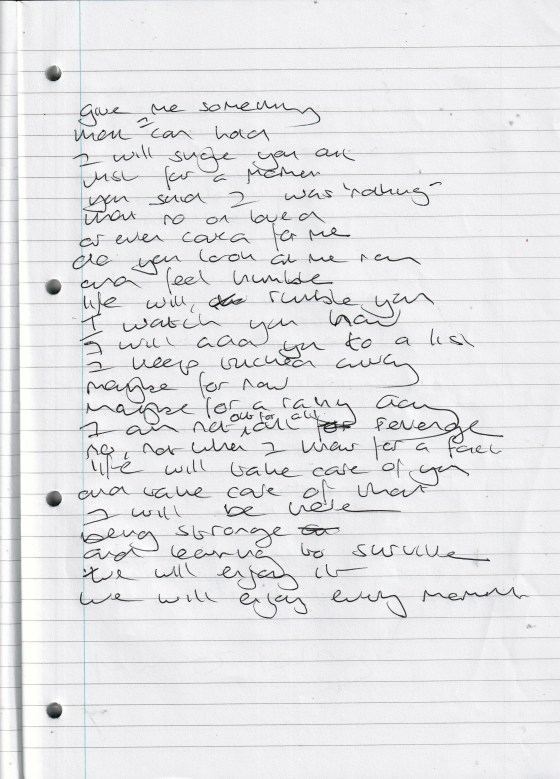 give me something
that I can hold
I will
you all
Just for a moment
you said I was "nothing"
that no one loved
or even cared for me
do you look at me now
and feel humble
life will humble you
I watch you
I will add you to a list
I keep tucked away
maybe for now
maybe for a rainy day
I am not out for all revenge
no, not when I know for a fact
life will take care of you
and take care of that
I will be here
being strong
and learning to survive
we will enjoy it
we will enjoy every moment